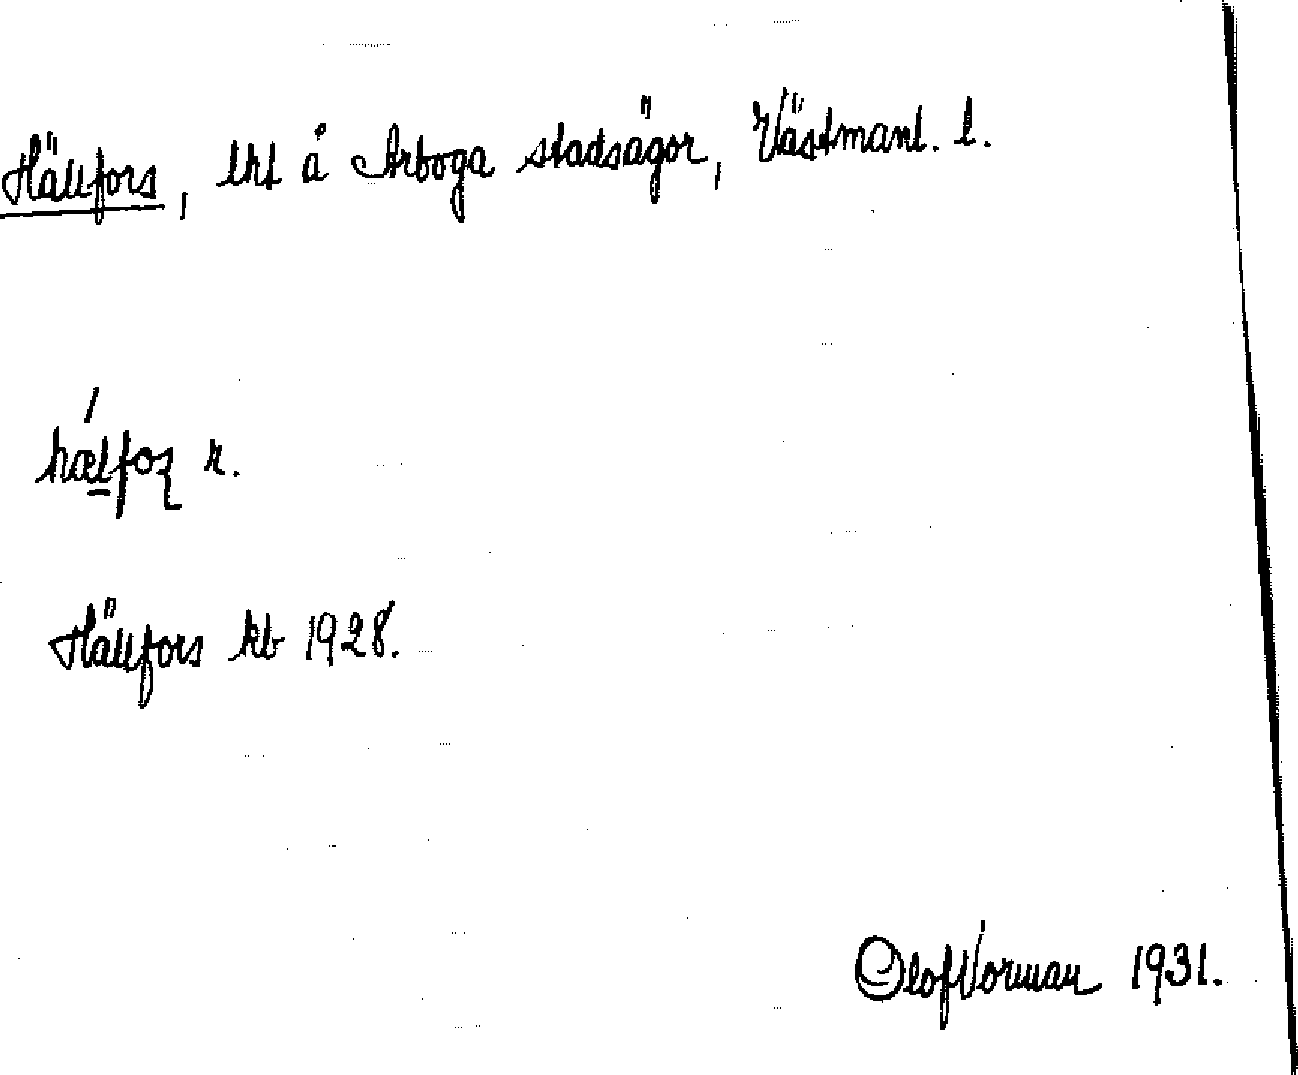 Hällfors, lht å Arboga stadsägor, Västmanl. l.
hǽl̲foʂ r.
Hällfors kb 1928.
Olof Vorman 1931.